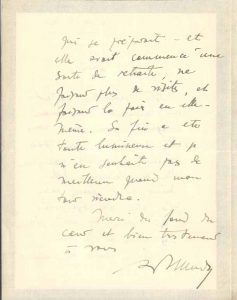 qui se préparait – et
elle avait commencé une
sorte de retraite, ne
faisant plus de visites, et
faisant la paix en elle-
même. Sa fin a été
toute lumineuse et je
n'en souhaite pas de
meilleure quand mon
tour viendra.
Merci du fond du
cœur et bien tristement
à vous